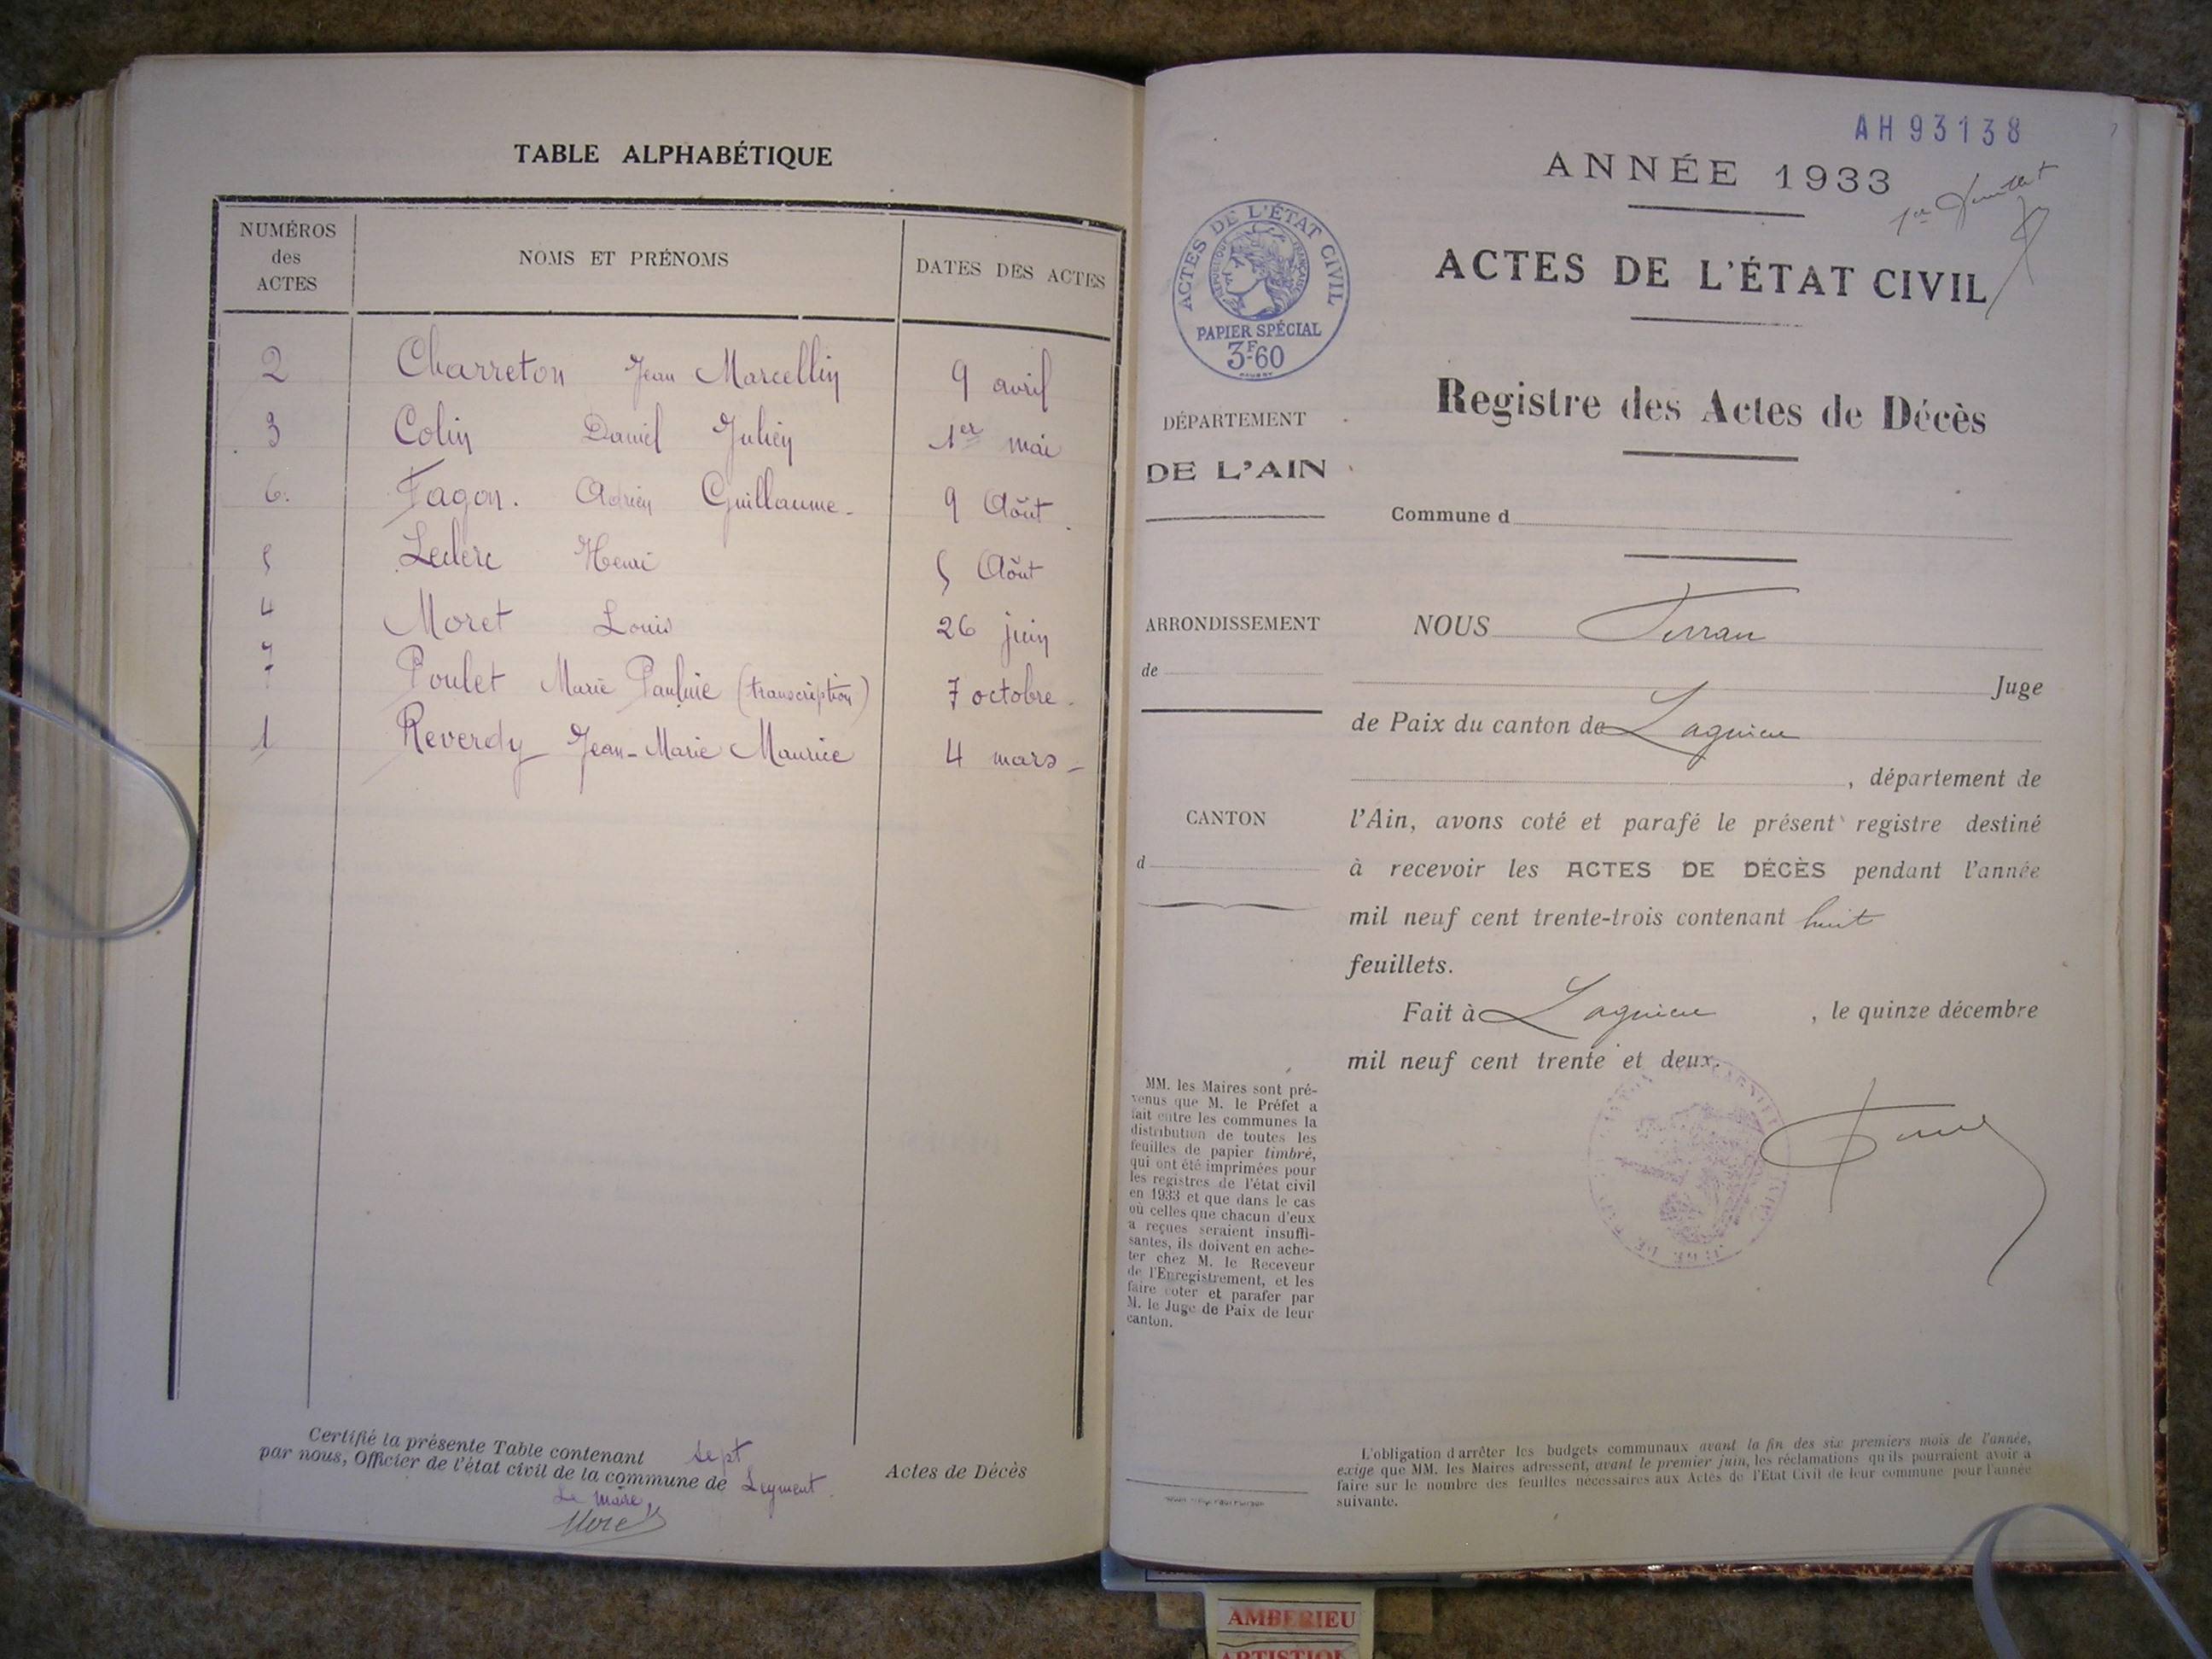 TABLE ALPHABÉTIQUE
NUMÉROS des ACTES
NOMS ET PRÉNOMS
DATES DES ACTES
2 Charreton Jean Marcellin 9 avril
3 Colin Daniel Julien 1er mai
6. Fagon. Adrien Guillaume. 9 Août.
5 Leclerc Henri 5 Août
4 Moret Louis 26 juin
7 Poulet Marie Pauline (transcription) 7 octobre.
1 Reverdy Jean-Marie Maurice 4 mars -
Certifié la présente Table contenant sept Actes de Décès
par nous, Officier de l'état civil de la commune de Leyment.
Le Maire,
AH93138
ANNÉE 1933
1er feuillet
ACTES DE L'ÉTAT CIVIL
RÉPUBLIQUE FRANÇAISE
PAPIER SPÉCIAL
3F60
ACTES DE L'ÉTAT CIVIL
Registre des Actes de Décès
DÉPARTEMENT
DE L'AIN
Commune d
ARRONDISSEMENT
de
CANTON
d
NOUS
Juge
de Paix du canton de Lagnieu
, département de
l'Ain, avons coté et parafé le présent registre destiné
à recevoir les ACTES DE DÉCÈS pendant l'année
mil neuf cent trente-trois contenant huit
feuillets.
Fait à Lagnieu , le quinze décembre
mil neuf cent trente et deux.
MM. les Maires sont pré-
venus que M. le Préfet a
fait entre les communes la
distribution de toutes les
feuilles de papier timbré,
qui ont été imprimées pour
les registres de l'état civil
en 1933 et que dans le cas
où celles que chacun d'eux
a reçues seraient insuffi-
santes, ils doivent en ache-
ter chez M. le Receveur
de l'Enregistrement, et les
faire coter et parafer par
M. le Juge de Paix de leur
canton.
L'obligation d'arrêter les budgets communaux avant la fin des six premiers mois de l'année,
exige que MM. les Maires adressent, avant le premier juin, les réclamations qu'ils pourraient avoir à
faire sur le nombre des feuilles nécessaires aux Actes de l'Etat Civil de leur commune pour l'année
suivante.
AMBERIEU